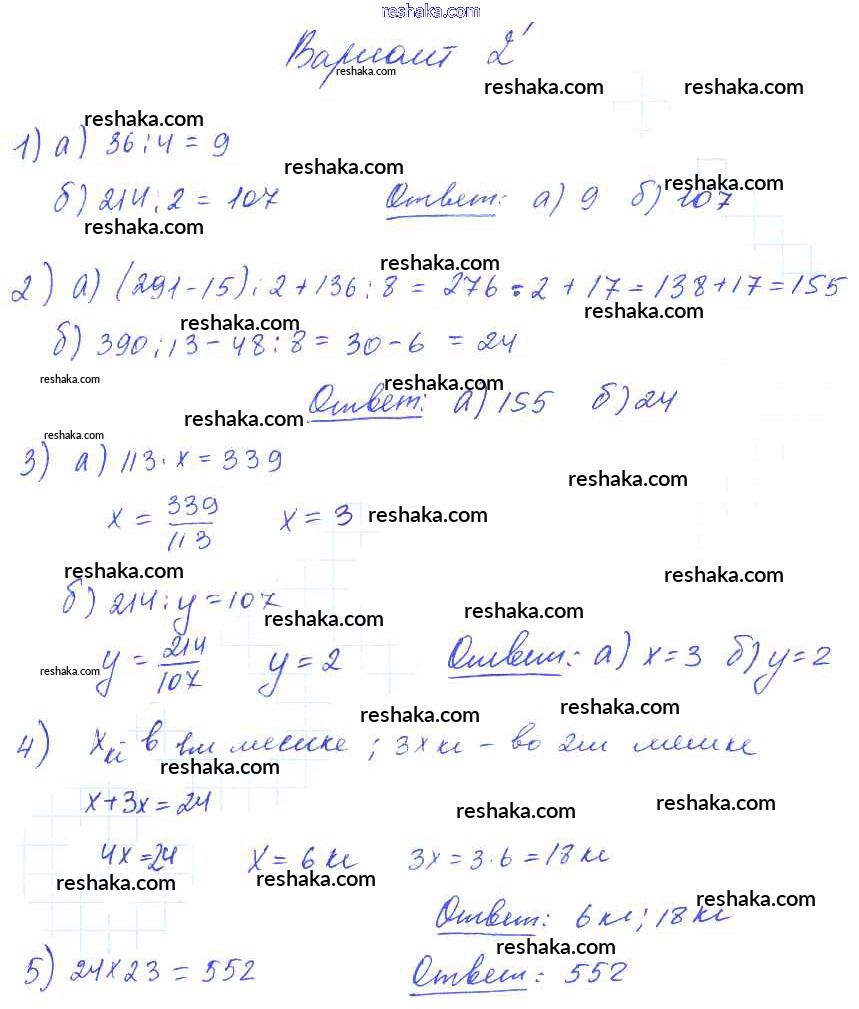 reshaka.com
Вариант 2
reshaka.com
reshaka.com reshaka.com
reshaka.com
1) а) 36:4=9
reshaka.com
reshaka.com
б) 214:2=107 Ответ: а) 9 б) 107
reshaka.com
reshaka.com
2) а) (291-15):2+136:8=276:2+17=138+17=155
reshaka.com
reshaka.com
б) 390:13-48:8=30-6=24
reshaka.com
reshaka.com
Ответ: а) 155 б) 24
reshaka.com
reshaka.com
3) а) 113·x=339
reshaka.com
x=339/113 x=3
reshaka.com
reshaka.com
reshaka.com
б) 214:y=107
reshaka.com
reshaka.com
y=214/107 y=2 Ответ: а) x=3 б) y=2
reshaka.com
reshaka.com
reshaka.com
4) x кг в 1м мешке; 3x кг - во 2м мешке
reshaka.com
x+3x=24
reshaka.com
reshaka.com
4x=24 x=6 кг 3x=3·6=18 кг
reshaka.com
reshaka.com
reshaka.com
Ответ: 6 кг; 18 кг
reshaka.com
5) 24x23=552 Ответ: 552